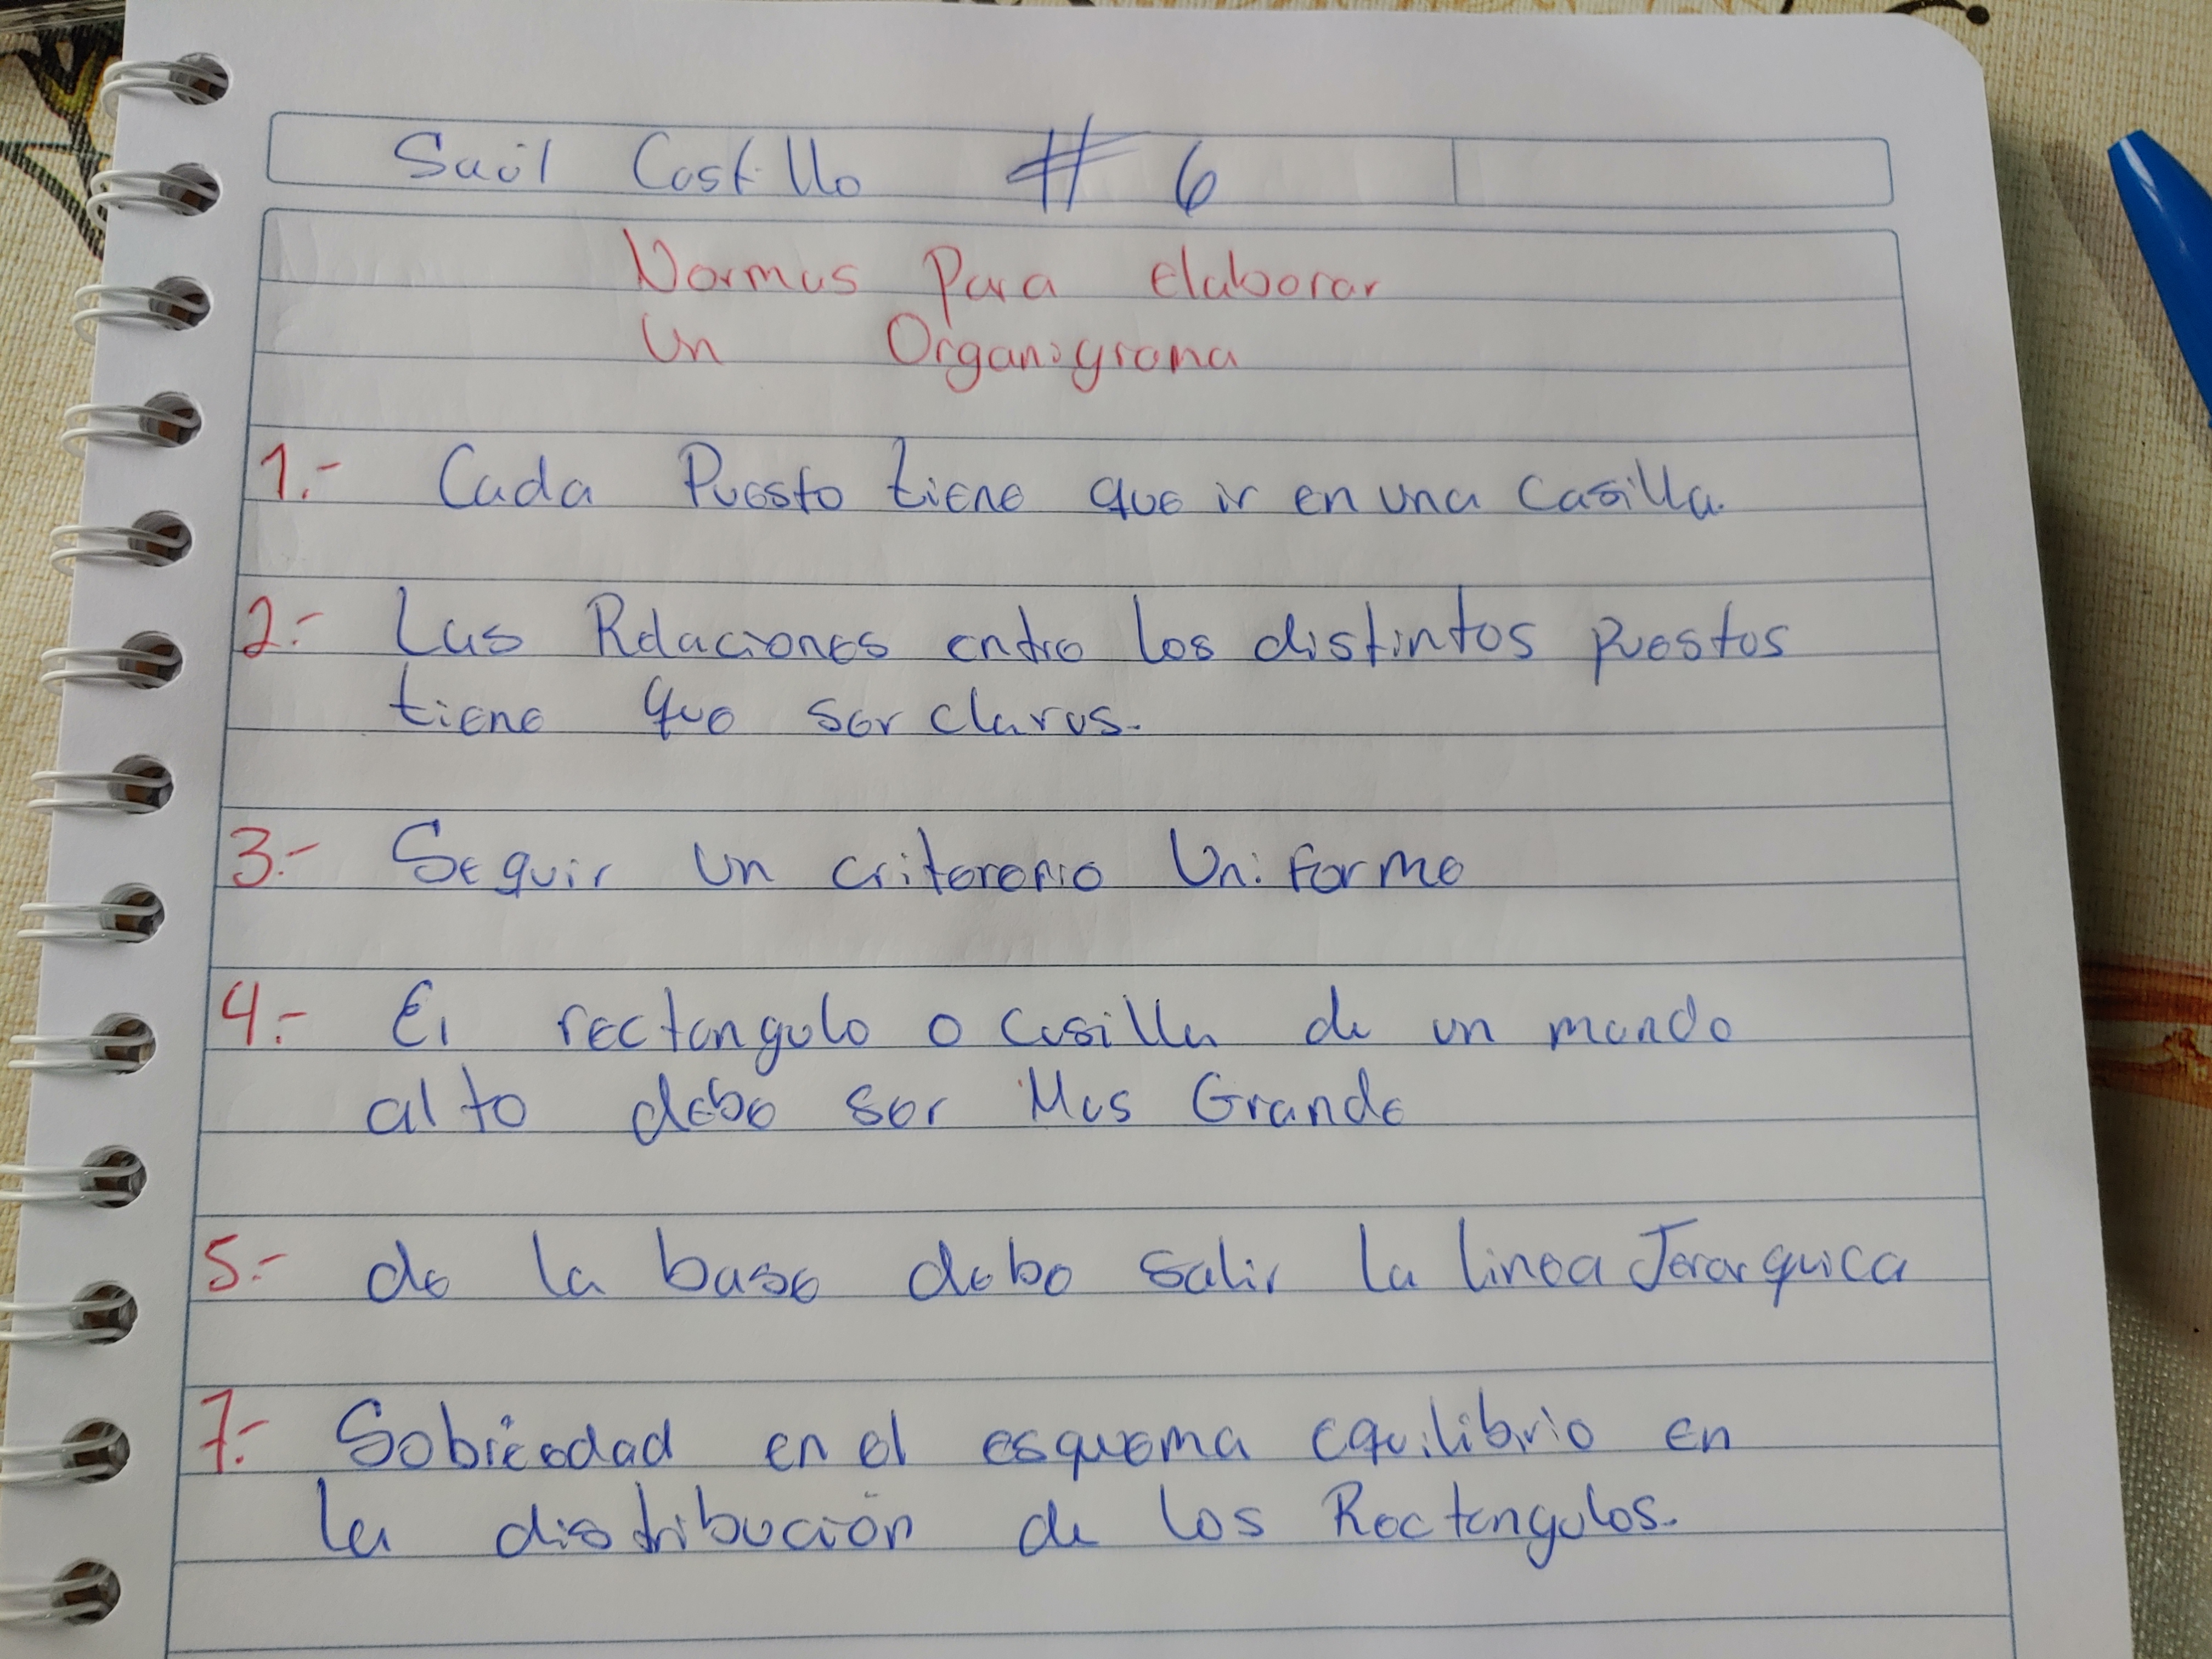 Saúl Castillo # 6
Normas Para elaborar
Un Organigrama
1.- Cada Puesto tiene que ir en una Casilla.
2.- Las Relaciones entre los distintos puestos
tiene que ser claras.
3.- Seguir un criterorio Uniforme
4.- El rectangulo o casilla de un mando
alto debe ser Mas Grande
5.- de la base debe salir la linea Jerarquica
7.- Sobriedad en el esquema equilibrio en
la distribución de los Rectangulos.